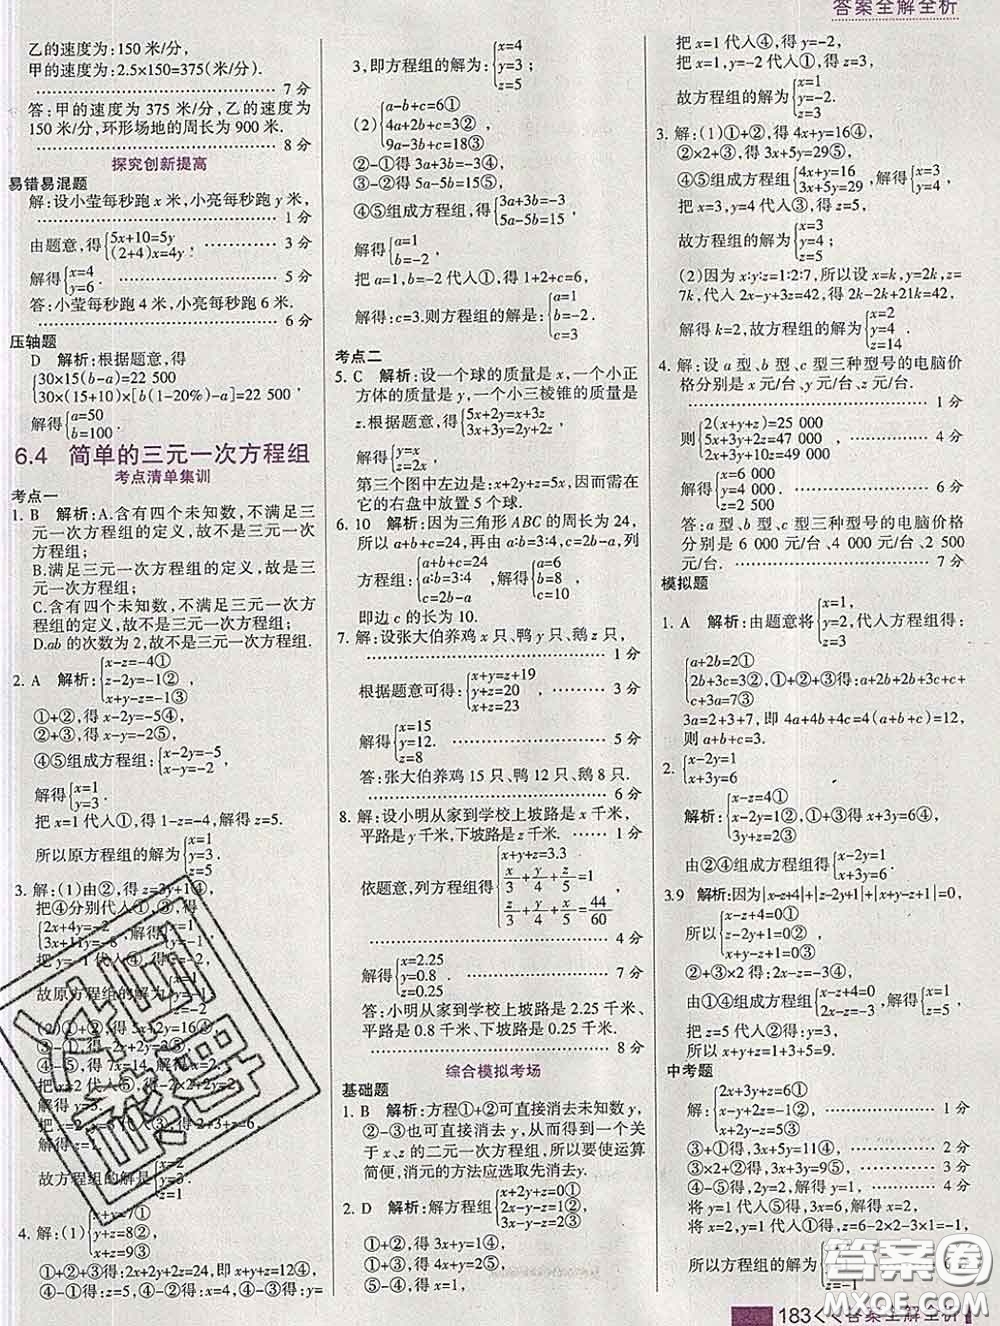 答案全解全析
乙的速度为:150 米/分,
甲的速度为:2.5×150=375(米/分).
7 分
答:甲的速度为 375 米/分,乙的速度为
150 米/分,环形场地的周长为 900 米.
8 分
探究创新提高
易错易混题
解:设小莹每秒跑 x 米,小亮每秒跑 y 米,
1 分
由题意,得{5x+10=5y
(2+4)x=4y. 3 分
解得{x=4
y=6. 5 分
答:小莹每秒跑 4 米,小亮每秒跑 6 米.
6 分
压轴题
D 解析:根据题意,得
{30×15(b-a)=22 500
30×(15+10)×[b(1-20%)-a]=22 500
解得{a=50
b=100.
6.4 简单的三元一次方程组
考点清单集训
考点一
1. B 解析:A.含有四个未知数,不满足三
元一次方程组的定义,故不是三元一次
方程组;
B.满足三元一次方程组的定义,故是三
元一次方程组;
C.含有四个未知数,不满足三元一次方
程组的定义,故不是三元一次方程组;
D.ab 的次数为 2,故不是三元一次方程组.
2. A 解析:{x-z=-4①
z-2y=-1②,
x+y-z=-1③
①+②,得 x-2y=-5④,
②+③,得 x-y=-2⑤,
④⑤组成方程组{x-2y=-5
x-y=-2,
解得{x=1
y=3.
把 x=1 代入①,得 1-z=-4,解得 z=5.
所以原方程组的解为{x=1
y=3.
z=5
3. 解:(1)由②,得 z=3y+1④,
把④分别代人①,③,得
{2x+4y=-2
3x+11y=-8,解得{
y=-1.
故原方程组的解为
y=-1.
③-①,得 2x+2y=
④-①,得 7x=14,解得 x=2.
把 x=2 代人⑤,得
解得 y=3.
故方程组的解是{x=2
y=3.
z=1
4. 解:(1){x+y=7①
y+z=8②,
x+z=9③
①+②+③得:2x+2y+2z=24,即 x+y+z=12④,
④-①得:z=5,④-②得:x=4,④-③得:y=
3,即方程组的解为:{x=4
y=3;
z=5
(2){a-b+c=6①
4a+2b+c=3②,
9a-3b+c=18③
②-①得 3a+3b=-3④,
③-②得 5a-5b=15⑤,
④⑤组成方程组,得{3a+3b=-3
5a-5b=15,
解得{a=1
b=-2.
把 a=1,b=-2 代人①,得 1+2+c=6,
解得:c=3.则方程组的解是:{a=1
b=-2.
c=3
考点二
5. C 解析:设一个球的质量是 x,一个小正
方体的质量是 y,一个小三棱锥的质量是
z.根据题意,得{5x+2y=x+3z
3x+3y=2y+2z,
解得{
第三个图中左边是:x+2y+z=5x,因而需在
它的右盘中放置 5 个球.
6. 10 解析:因为三角形 ABC 的周长为 24,
所以 a+b+c=24,再由 a∶b=3∶4,c=2b-a,列
方程组:{a+b+c=24
a∶b=3∶4
c=2b-a,解得{a=6
b=8,
c=10
即边 c 的长为 10.
7. 解:设张大伯养鸡 x 只、鸭 y 只、鹅 z 只,
1 分
根据题意可得:{x+y=z+19
y+z=20,
x+z=23 3 分
解得{x=15
y=12.
z=8 5 分
答:张大伯养鸡 15 只、鸭 12 只、鹅 8 只.
6 分
8. 解:设小明从家到学校上坡路是 x 千米,
平路是 y 千米,下坡路是 z 千米. 1 分
依题意,列方程组得{x+y+z=3.3
x/3+y/4+z/5=1,
z/3+y/4+x/5=44/60
4 分
解得{x=2.25
y=0.8.
z=0.25 7 分
答:小明从家到学校上坡路是 2.25 千米、
平路是 0.8 千米、下坡路是 0.25 千米.
8 分
综合模拟考场
基础题
1. B 解析:方程①+②可直接消去未知数 y,
②-③也可直接消去 y,从而得到一个关
于 x、z 的二元一次方程组,所以要使运算
简便,消元的方法应选取先消去y.
2. D 解析:解方程组{x+2y+z=0①
2x-y-z=1②,
3x-y-z=2③
①+②,得 3x+y=1④,
①+③,得 4x+y=2⑤,
⑤-④,得 x=1,
把 x=1代人④,得 y=-2,
把 x=1,y=-2 代入①,得 z=3,
故方程组的解为{x=1
y=-2.
z=3
3. 解:(1)①+②,得 4x+y=16④,
②×2+③,得 3x+5y=29⑤,
④⑤组成方程组{4x+y=16
3x+5y=29,解得{x=3
y=4,
把 x=3,y=4 代入③,得 z=5,
故方程组的解为{x=3
y=4;
z=5
(2)因为 x∶y∶z=1∶2∶7,所以设 x=k,y=2k,z=
7k,代入 2x-y+3z=42,得 2k-2k+21k=42,
解得 k=2,故方程组的解为{x=2
y=4.
z=14
4. 解:设 a 型、b 型、c 型三种型号的电脑价
格分别是 x 元/台、y 元/台、z 元/台.
1 分
则{2(x+z)+2y=25 000
5x+3y+2z=47 000,
4 分
解得{x=6 000
y=4 000.
z=2 500 6 分
答:a 型、b 型、c 型三种型号的电脑价格
分别是 6 000 元/台、4 000 元/台、2 500
元/台. 7 分
模拟题
1. A 解析:由题意将{x=1,
y=2,代入方程组得:
z=3
{a+2b=2①
2b+3c=3②,①+②+③得:a+2b+2b+3c+c+
c+3a=7③
3a=2+3+7,即 4a+4b+4c=4(a+b+c)=12,
则 a+b+c=3.
2. {x-2y=1
x+3y=6
解析:{x-z=4①
x-2y=1②,①+③得 x+3y=6④,
3y+z=2③
由②④组成方程组得{x-2y=1
x+3y=6.
3.9 解析:因为|x-z+4|+|z-2y+1|+|x+y-z+1|=0,
所以{x-z+4=0①
z-2y+1=0②,
x+y-z+1=0③
由①④组成方程组{x-z+4=0
,解得{x=1
z=5,
把 z=5 代人②得:y=3,
所以 x+y+z=1+3+5=9.
中考题
解:{2x+3y+z=6①
x-y+2z=-1②,
x+2y-z=5③ 1 分
③+①得,3x+5y=11④, 2 分
③×2+②得,3x+3y=9⑤, 3 分
④-⑤得 2y=2,y=1, 4 分
将 y=1代人⑤得,3x=6,x=2,
将 x=2,y=1代入①得,z=6-2×2-3×1=-1,
所以方程组的解为{
z=-1 6 分
答案圈
MXQE.COM
183<<答案全解全析